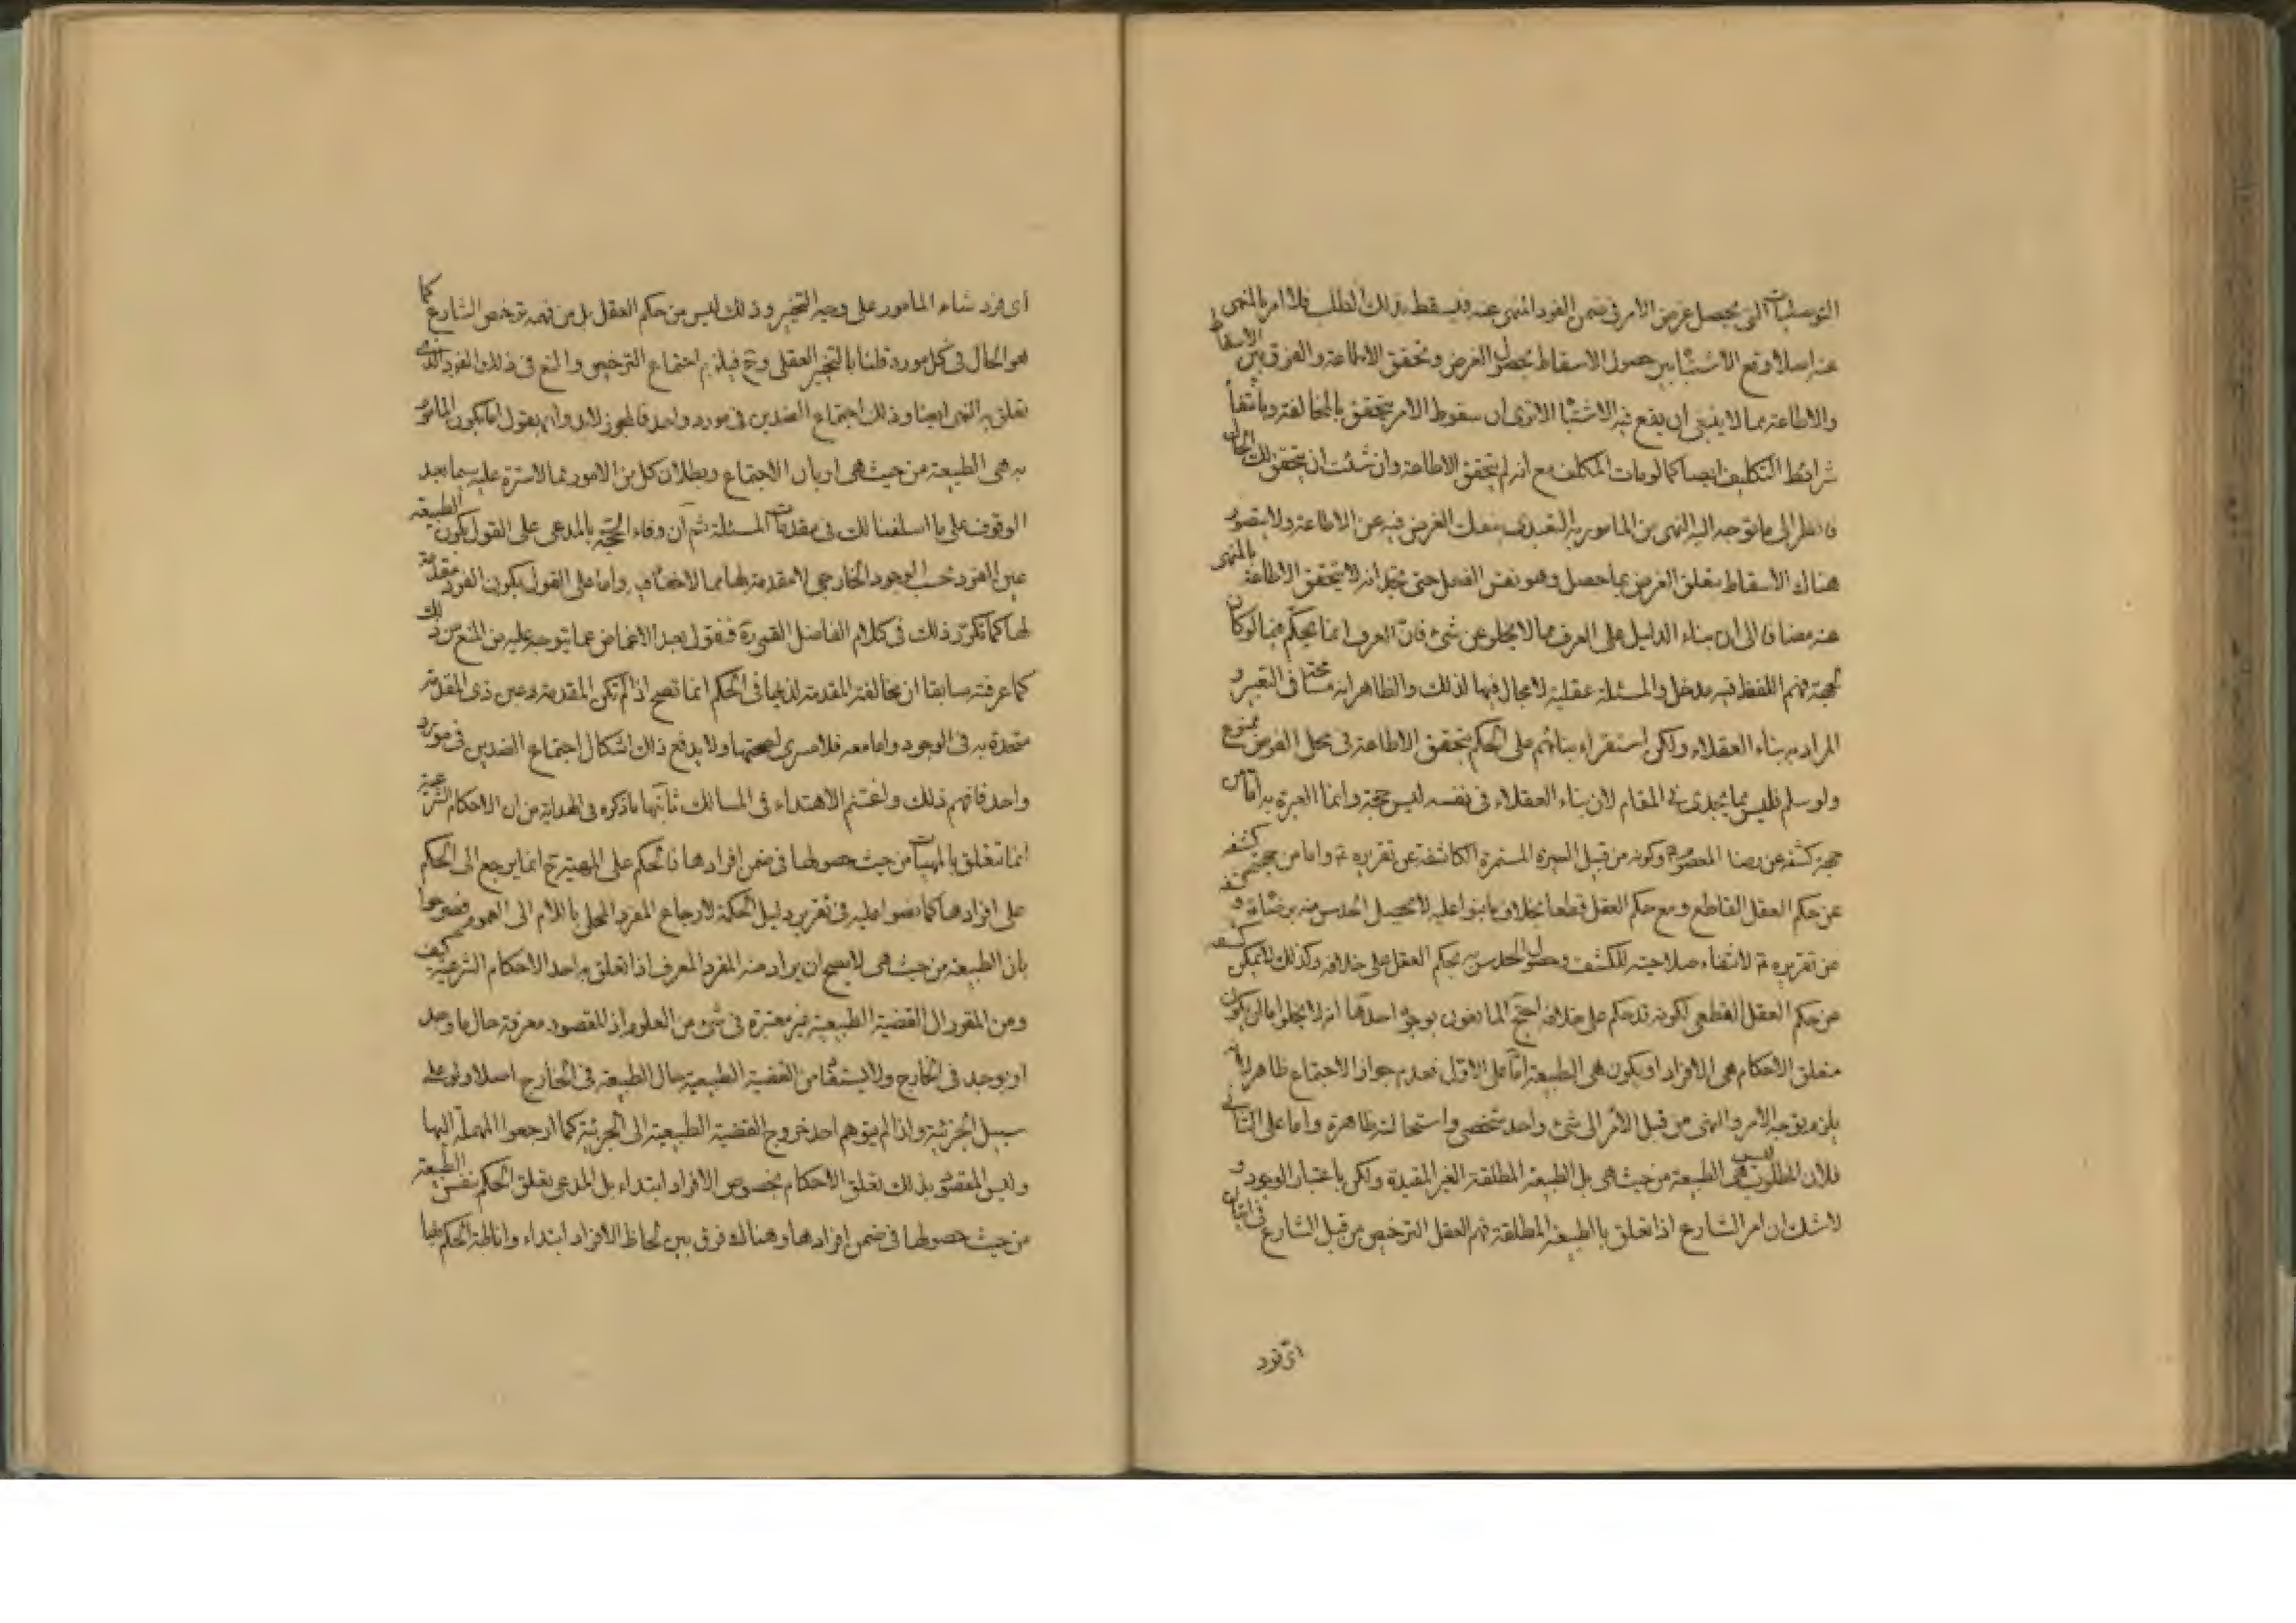 التوصليات التي يحصل غرض الامر في ضمن الفرد المنهي عنه فيسقط بذلك الطلب فلما امر بالمنهي
عنه اصلا وقع الاشتباه بين حصول الاسقاط بحصول الغرض وتحقق الاطاعة والفرق بين الاسقاط
والاطاعة مما لا ينبغي ان يقع فيه الاشتباه الا ترى ان سقوط الامر يتحقق بالمخالفة وبانتفاء
شرائط التكليف ايضا كما لو مات المكلف مع انه لم يتحقق الاطاعة وان شئت ان يتحقق لك الحال
فانظر الى ما توجه اليه النهي من المامور به التعبدي ينفك الغرض فيه عن الاطاعة ولا يتصور
هناك الاسقاط بتعلق الغرض بما حصل وهو نفس الفعل حتى يتخيل انه لا يتحقق الاطاعة بالمنهي
عنه مضافا الى ان بناء الدليل على العرف مما لا يخلو عن شيء فان العرف انما يحكم فيما لو كان
لجهة فهم اللفظ فيه مدخل والمسئلة عقلية لا مجال فيها لذلك والظاهر انه مسامحة في التعبير و
المراد به بناء العقلاء ولكن استقراء بنائهم على الحكم بتحقق الاطاعة في محل الفرض ممنوع
ولو سلم فليس مما يجدي في المقام لان بناء العقلاء في نفسه ليس حجة وانما العبرة به اما من
جهة كشفه عن رضا المعصوم وكونه من قبيل السيرة المستمرة الكاشفة عن تقريره واما من جهة كشفه
عن حكم العقل القاطع ومع حكم العقل قطعا بخلاف ما بنوا عليه لا يحصل الحدس منه برضائه و
عن تقريره لانتفاء صلاحيته للكشف وحصول الحدس به بحكم العقل على خلافه وكذلك لا يمكن كشفه
عن حكم العقل القطعي لكونه قد حكم على خلافه احتج المانعون بوجوه احدها انه لا يخلو اما ان يكون
متعلق الاحكام هي الافراد او يكون هي الطبيعة اما على الاول فعدم جواز الاجتماع ظاهر لانه
يلزم توجه الامر والنهي من قبل الامر الى شيء واحد شخصي واستحالته ظاهرة واما على الثاني
فلان المطلوب ليس هي الطبيعة من حيث هي بل الطبيعة المطلقة الغير المقيدة ولكن باعتبار الوجود و
لا شك ان امر الشارع اذا تعلق بالطبيعة المطلقة فهم العقل الترخيص من قبل الشارع في اتيان
اي فرد
اي فرد شاء المامور على وجه التخيير وذلك ليس من حكم العقل بل من فهمه ترخيص الشارع كما
هو الحال في كل مورد قلنا بالتخيير العقلي وح فيلزم اجتماع الترخيص والمنع في ذلك الفرد الذي
تعلق به النهي ايضا وذلك اجتماع الضدين في مورد واحد فالمجوز لابد وان يقول اما بكون المامور
به هي الطبيعة من حيث هي او بان الاجتماع وبطلان كل من الامور مما لا سترة عليه سيما بعد
الوقوف على ما اسلفنا لك في مقدمات المسئلة ثم ان وفاء الحجة بالمدعى على القول بكون الطبيعة
عين الفرد بحسب الوجود الخارجي لا مقدمة لها مما لا خفاء فيه واما على القول بكون الفرد مقدمة
لها كما تكرر ذلك في كلام الفاضل القمي ره فنقول بعد الاغماض عما يتوجه عليه من المنع من ذلك
كما عرفته سابقا ان مخالفة المقدمة لذيها في الحكم انما تصح اذا لم تكن المقدمة عين ذي المقدمة
متحدة به في الوجود واما معه فلا مسرى لصحتها ولا يدفع ذلك اشكال اجتماع الضدين في مورد
واحد فافهم ذلك واغتنم الاهتداء في المسالك ثانيها ما ذكره في الهداية من ان الاحكام الشرعية
انما تتعلق بالمهيات من حيث حصولها في ضمن افرادها فالحكم على المهية ح انما يرجع الى الحكم
على افرادها كما نصوا عليه في تقرير دليل الحكمة لارجاع المفرد المحلى باللام الى العموم فصرحوا
بان الطبيعة من حيث هي لا يصح ان يراد منه المفرد المعرف اذا تعلق به احد الاحكام الشرعية كيف
ومن المقرر ان القضية الطبيعية غير معتبرة في شيء من العلوم اذ المقصود معرفة حال ما وجد
او يوجد في الخارج ولا يستفاد من القضية الطبيعية حال الطبيعة في الخارج اصلا ولو على
سبيل الجزئية ولذا لم يتوهم احد خروج القضية الطبيعية الى الجزئية كما ارجعوا المهملة اليها
وليس المقصود بذلك تعلق الاحكام بخصوص الافراد ابتداء بل المدعى تعلق الحكم بنفس الطبيعة
من حيث حصولها في ضمن افرادها وهناك فرق بين لحاظ الافراد ابتداء واناطة الحكم بها